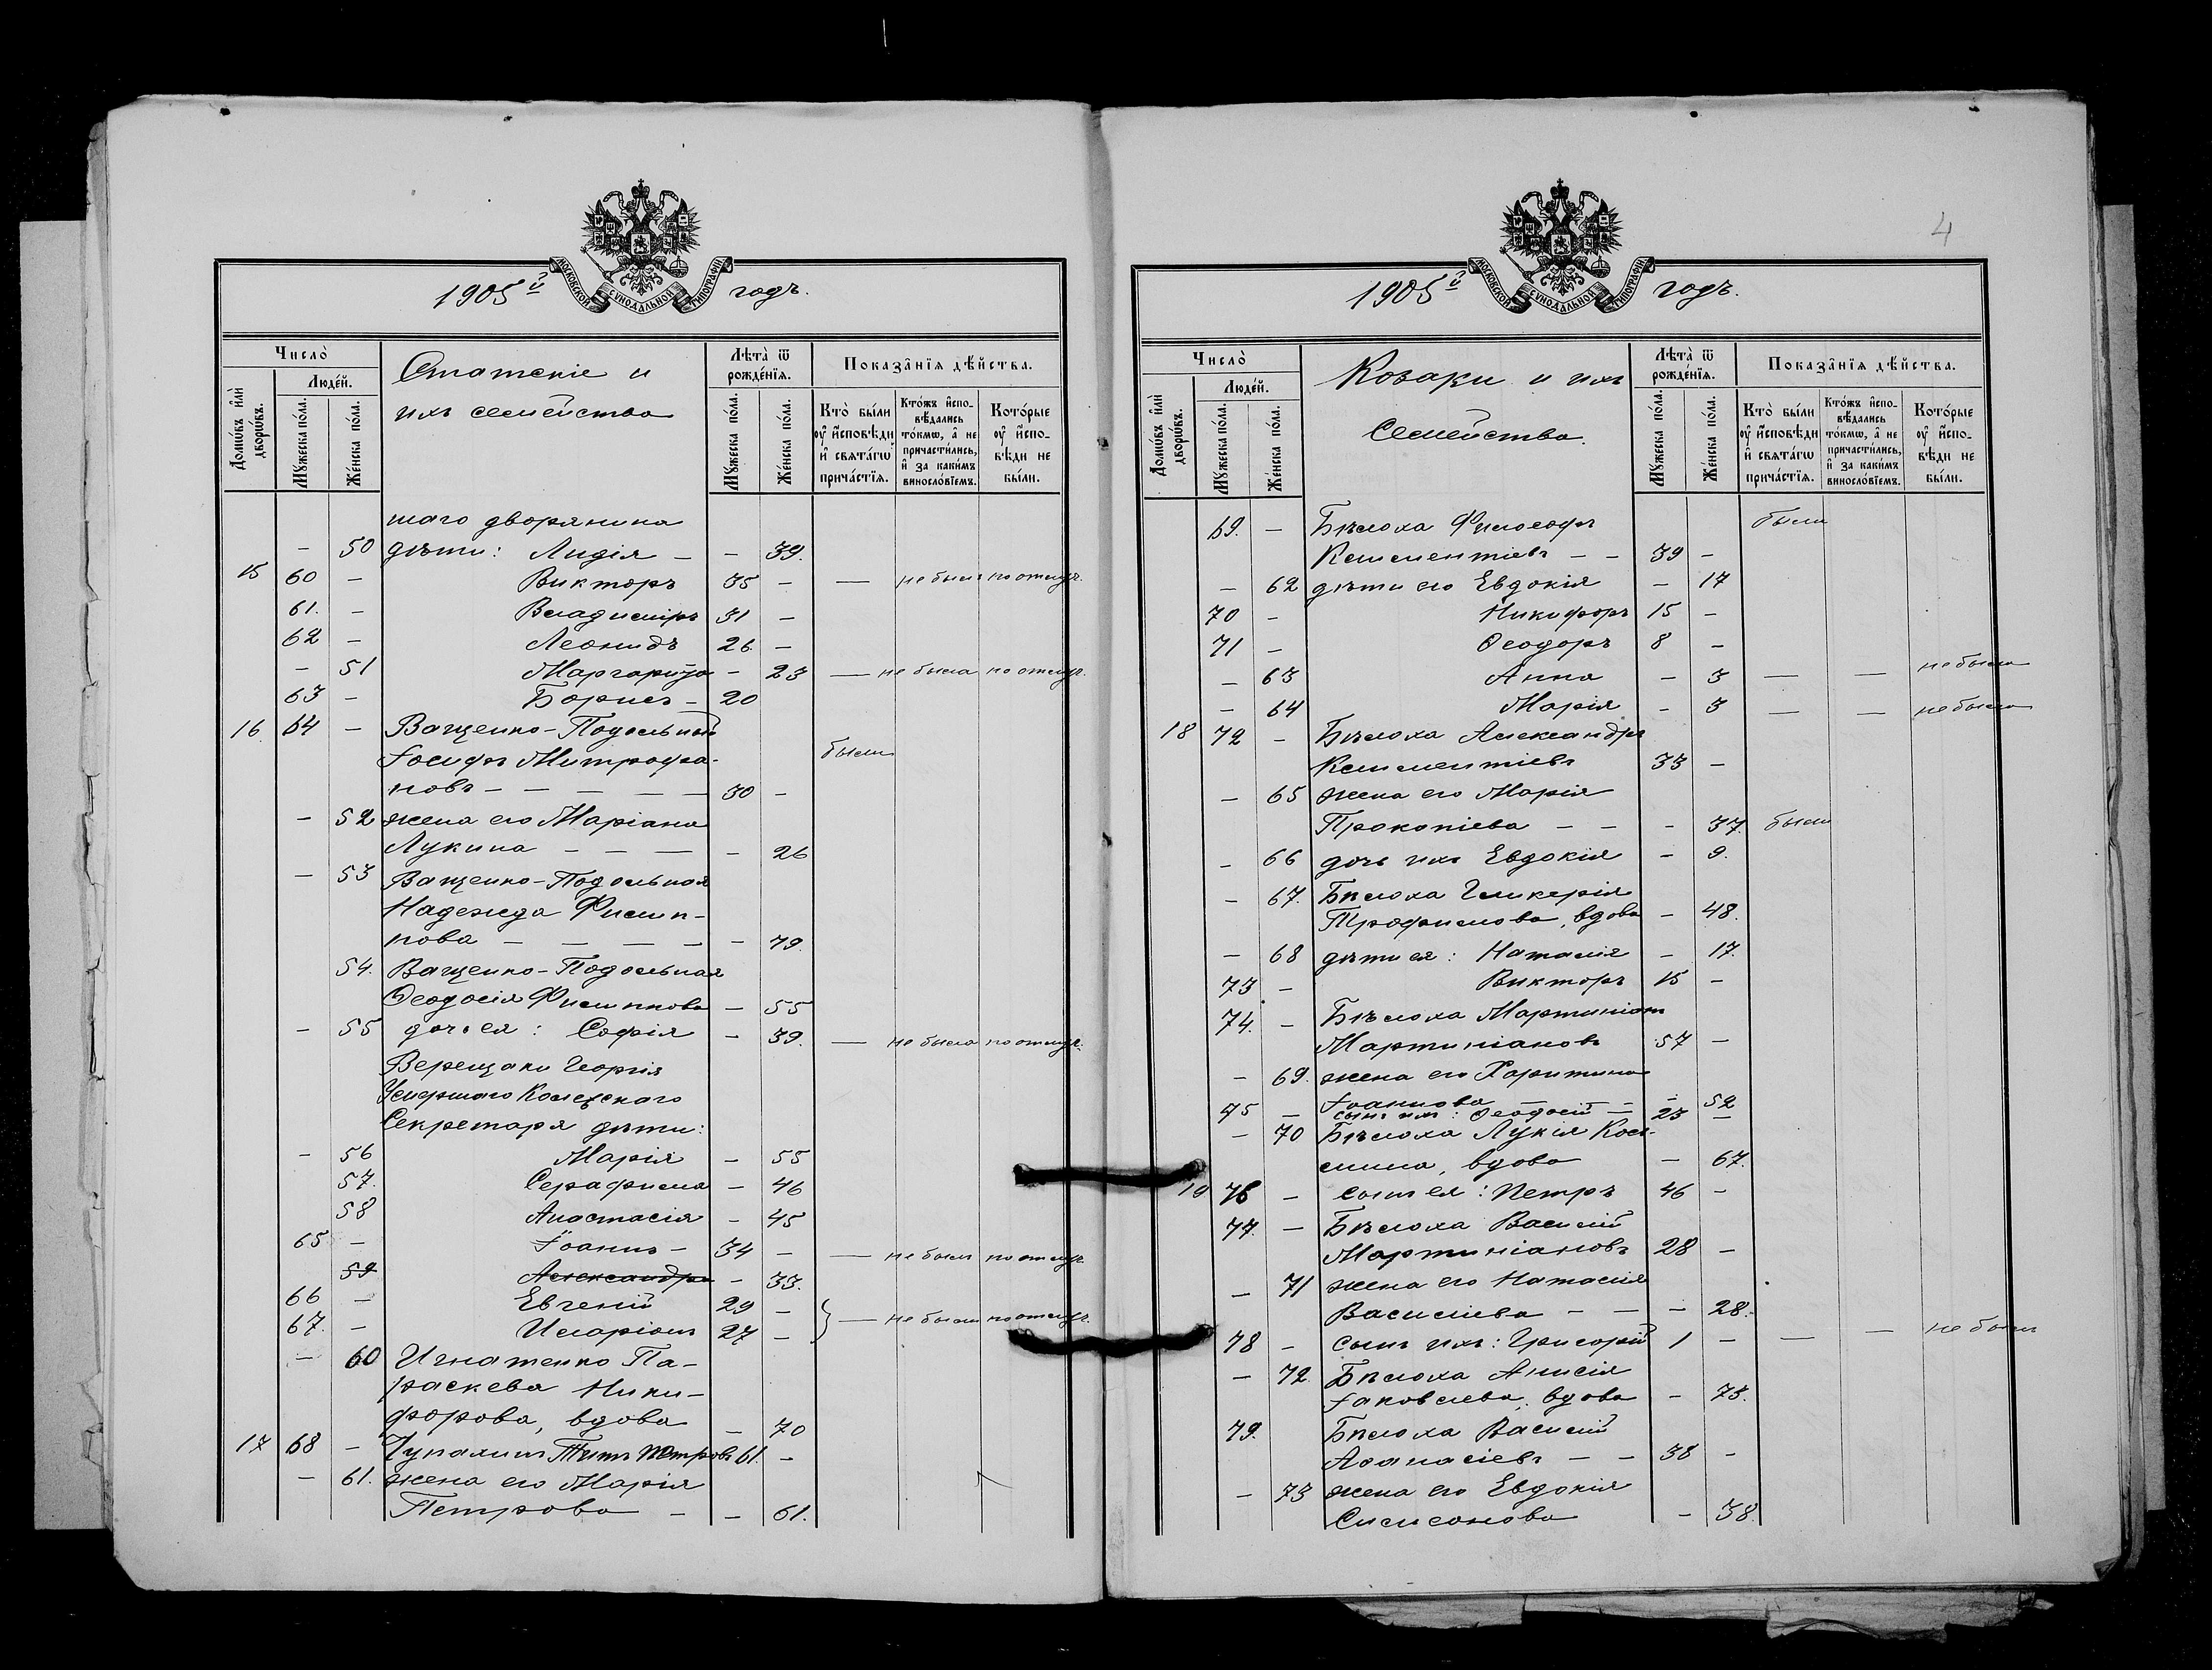 1905й годъ.
МОСКОВСКОЙ СѴНОДАЛЬНОЙ ТИПОГРАФІИ
Число̀
Людéй.
Домѡ́въ и҆лѝ дворѡ́въ.
Мꙋ́жеска по́ла.
Же́нска по́ла.
Статскіе и
ихъ семейства
Лѣта̀ ѿ рожде́нїѧ.
Мꙋ́жеска по́ла.
Же́нска по́ла.
Показа̑нїѧ дѣ́йства.
Кто̀ бы́ли ᲂу҆ и҆сповѣди и҆ свѧта́гѡ прича́стїѧ.
Кто́жъ и҆спо-вѣдались то́кмѡ, а҆ не причасти́лись, и҆ за каки́мъ винослóвїемъ.
Кото́рые ᲂу҆ и҆спо-вѣди не бы́ли.
шаго дворянина
- 50 дѣти: Лидія - - 39.
15 60 - Викторъ 35 - — не былъ по отлуч.
61. - Владиміръ 31 -
62 - Леонидъ 26. -
- 51 Маргарита - 23 — не была по отлуч.
63 - Борисъ - 20
16. 64 - Ващенко-Подольный
Іосифъ Митрофа- были
новъ - - - - - 30 -
- 52 жена его Маріана
Лукина - - - - - 26
- 53 Ващенко-Подольная
Надежда Филип-
пова - - - - - 79.
54. Ващенко-Подольная
Ѳеодосія Филиппова - 55
- 55 дочь ея: Софія - 39. — не была по отлуч.
Верещаки Георгія
Умершаго Колежскаго
Секретаря дѣти:
- 56 Марія - 55
57. Серафима - 46
58 Анастасія - 45
65 - Іоаннъ - 34 - — не былъ по отлуч.
59 Александра - 33.
66 - Евгеній 29 -
67. - Иларіонъ 27 - } — не были по отлуч.
- 60 Игнатенко Па-
раскева Ники-
форова, вдова - 70
17 68 - Чупахинъ Титъ Петровъ 61. -
- 61. жена его Марія
Петрова - - 61.
4
1905й годъ.
МОСКОВСКОЙ СѴНОДАЛЬНОЙ ТИПОГРАФІИ
Число̀
Людéй.
Домѡ́въ и҆лѝ дворѡ́въ.
Мꙋ́жеска по́ла.
Же́нска по́ла.
Козаки и ихъ
Семейства.
Лѣта̀ ѿ рожде́нїѧ.
Мꙋ́жеска по́ла.
Же́нска по́ла.
Показа̑нїѧ дѣ́йства.
Кто̀ бы́ли ᲂу҆ и҆сповѣди и҆ свѧта́гѡ прича́стїѧ.
Кто́жъ и҆спо-вѣдались то́кмѡ, а҆ не причасти́лись, и҆ за каки́мъ винослóвїемъ.
Кото́рые ᲂу҆ и҆спо-вѣди не бы́ли.
69. - Бѣлоха Философъ были
Климентіевъ - - 39 -
- 62 дѣти его Евдокія - 17
70 - Никифоръ 15 -
71 - Ѳеодоръ 8 -
- 63 Анна - 3 — — не была
- 64 Марія - 3 — — не была
18 72 - Бѣлоха Александръ
Климентіевъ 33 -
- 65 жена его Марія
Прокопіева - - - 37. были
- 66 дочь ихъ Евдокія - 9.
- 67. Бѣлоха Гликерія
Трофимова, вдова - 48.
- 68 дѣти ея: Наталія - 17.
73 - Викторъ 15 -
74. - Бѣлоха Мартиніанъ
Мартиніановъ 57 -
- 69. жена его Харитина
Іоаннова - - - 52
75 - сынъ ихъ: Ѳеодосій - 23 -
- 70 Бѣлоха Лукія Кось-
мина, вдова - 67.
19 76 - сынъ ея: Петръ 46 -
77. - Бѣлоха Василій
Мартиніановъ 28 -
- 71 жена его Наталія
Василіева - - - 28.
78 - сынъ ихъ: Григорій 1 - — — не былъ
- 72. Бѣлоха Анисія
Іаковлева, вдова - 73.
79. Бѣлоха Василій
Аѳанасіевъ - - 38 -
- 73 жена его Евдокія
Симеонова - 38.